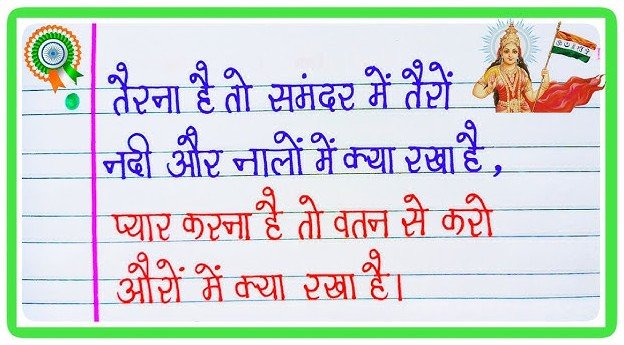 तैरना है तो समंदर में तैरों
नदी और नालों में क्या रखा है,
प्यार करना है तो वतन से करो
औरों में क्या रखा है।